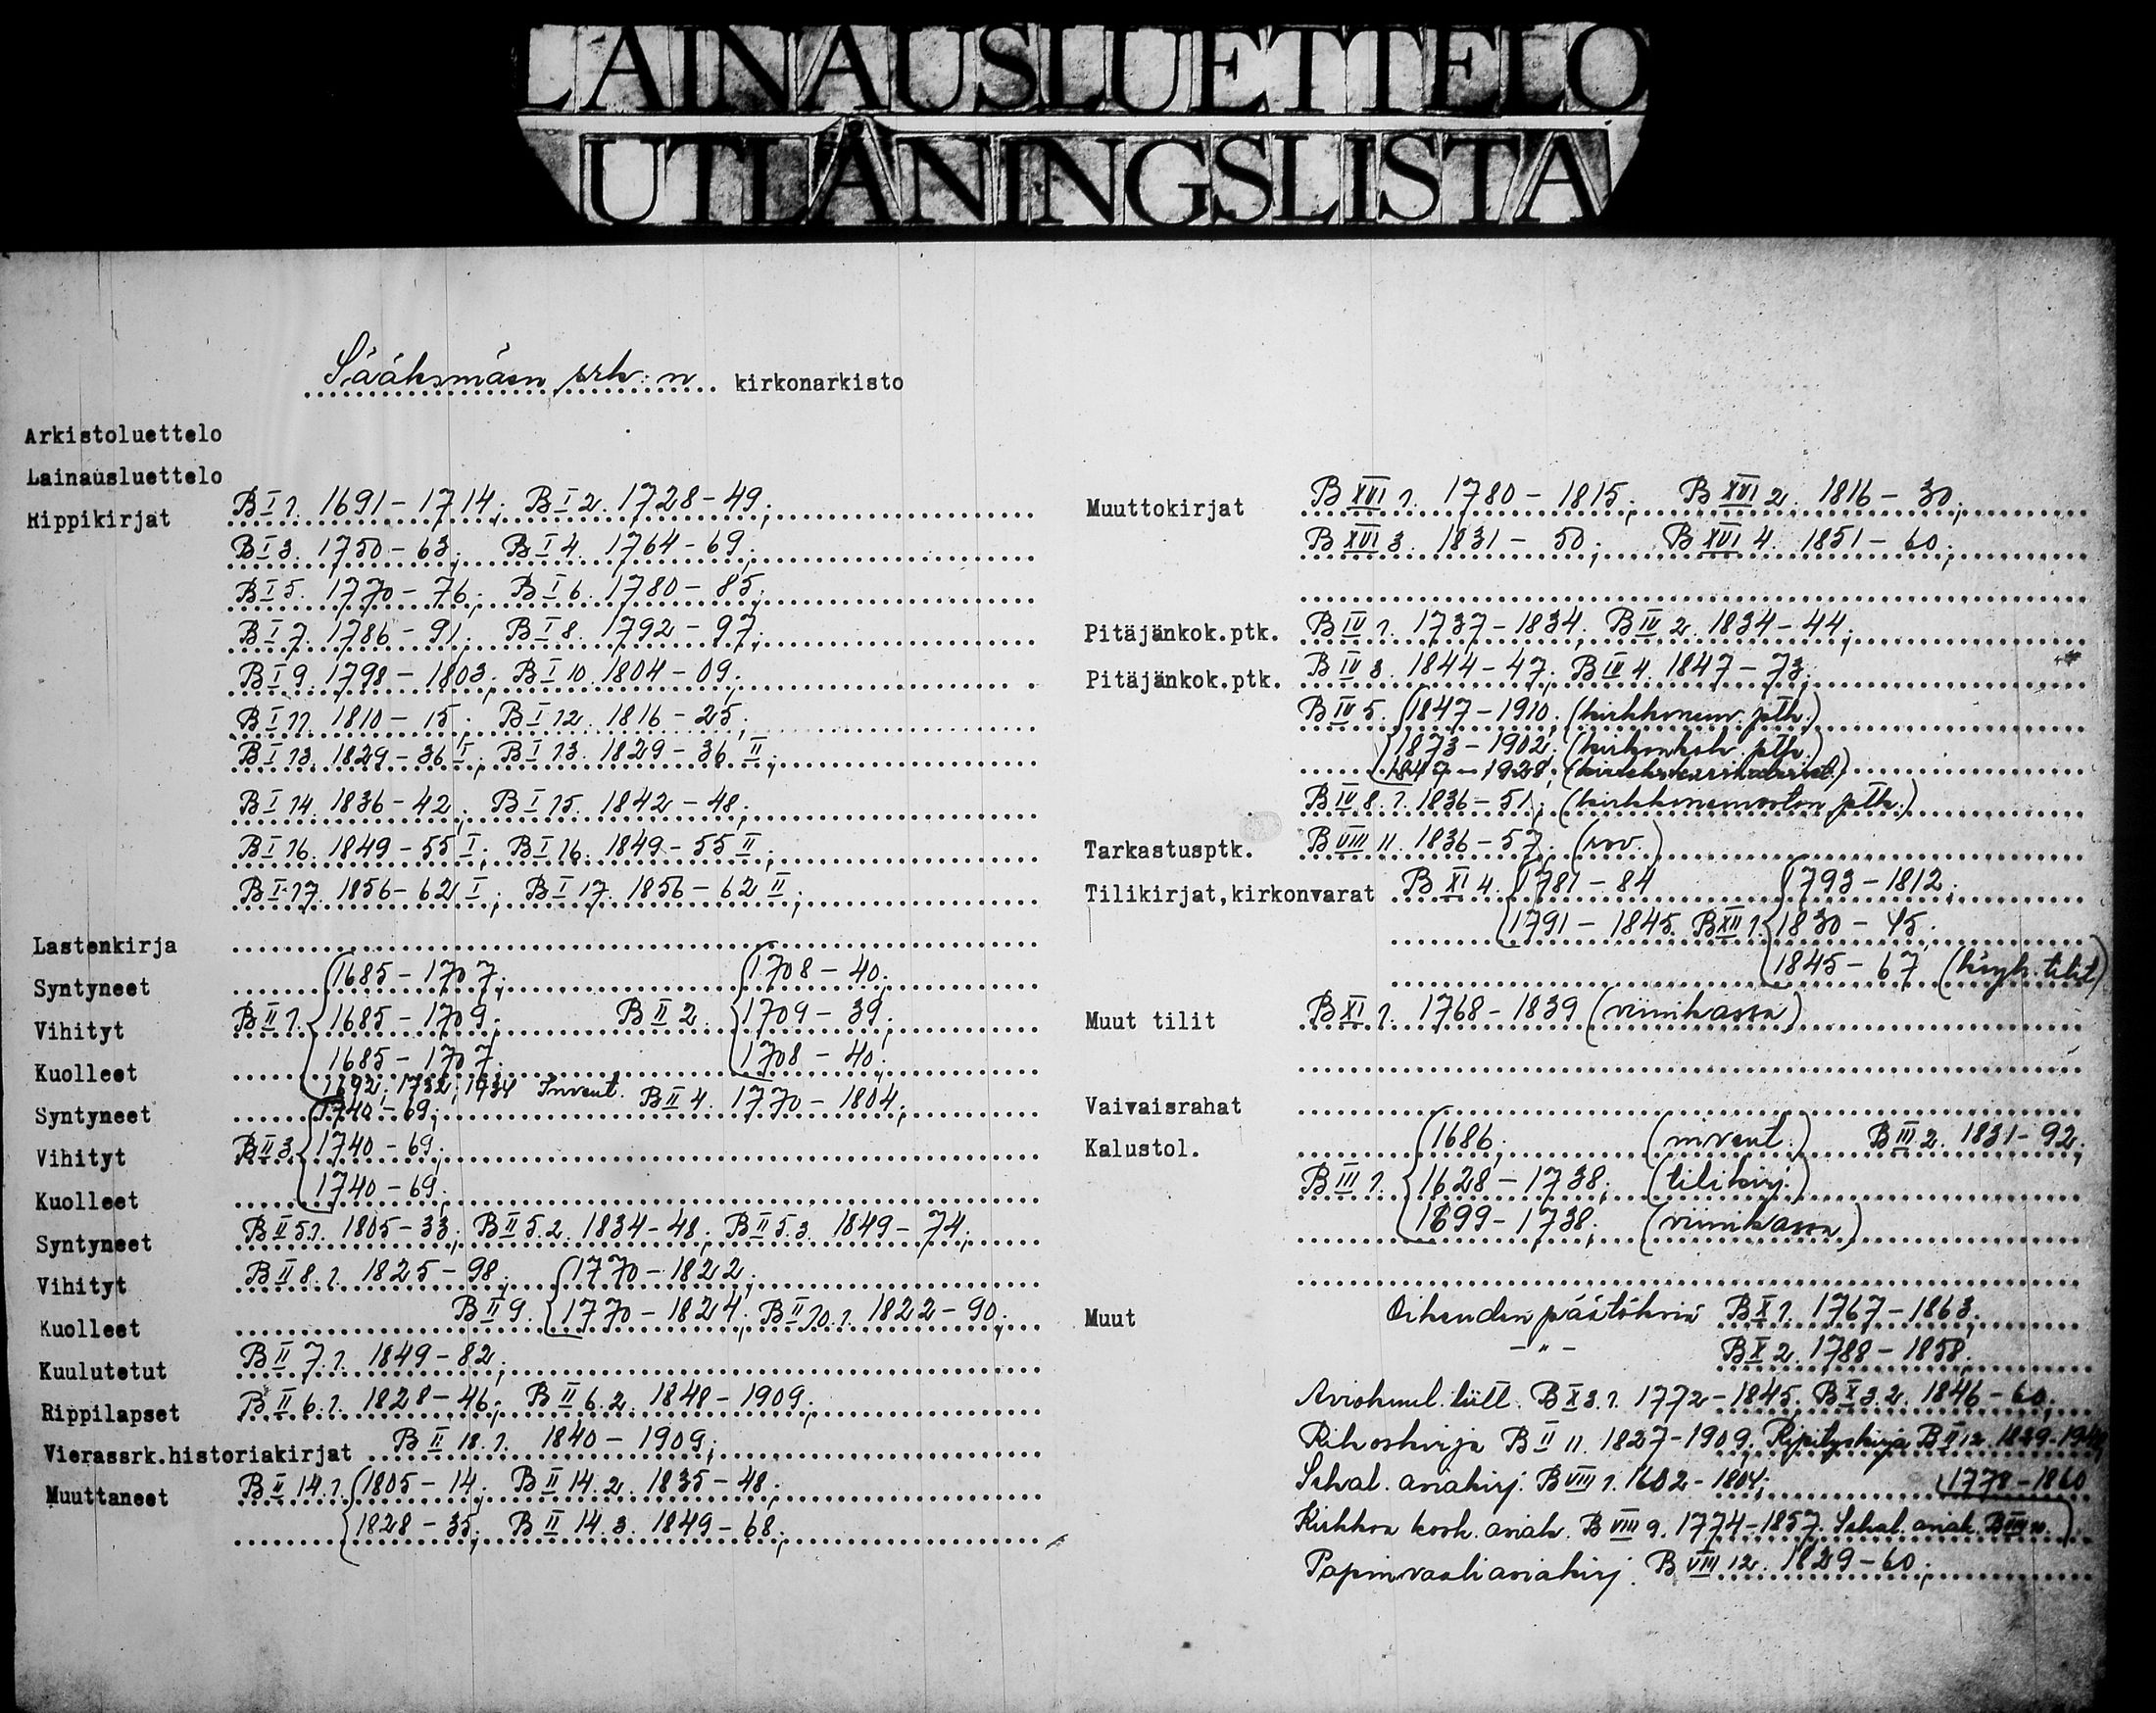 LAINAUSLUETTELO
UTLÅNINGSLISTA
Sääksmäen srk:n kirkonarkisto
Arkistoluettelo
Lainausluettelo
Rippikirjat B I 1. 1691-1714; B I 2. 1728-49;
B I 3. 1750-63; B I 4. 1764-69;
B I 5. 1770-76; B I 6. 1780-85;
B I 7. 1786-91; B I 8. 1792-97;
B I 9. 1798-1803; B I 10. 1804-09;
B I 11. 1810-15; B I 12. 1816-25;
B I 13. 1829-36 I; B I 13. 1829-36 II;
B I 14. 1836-42; B I 15. 1842-48;
B I 16. 1849-55 I; B I 16. 1849-55 II;
B I 17. 1856-62 I; B I 17. 1856-62 II;
Lastenkirja
Syntyneet 1685-1707; 1708-40;
Vihityt B II 1. 1685-1709; B II 2. 1709-39;
Kuolleet 1685-1707; 1708-40;
1692; 1732; 1734 Invent.
Syntyneet 1740-69; B II 4. 1770-1804;
Vihityt B II 3. 1740-69;
Kuolleet 1740-69;
Syntyneet B II 5.1. 1805-33; B II 5.2. 1834-48; B II 5.3. 1849-74;
Vihityt B II 8.1. 1825-98; 1770-1822;
Kuolleet B II 9. 1770-1824; B II 10.1. 1822-90;
Kuulutetut B II 7.1. 1849-82;
Rippilapset B II 6.1. 1828-46; B II 6.2. 1848-1909;
Vierassrk.historiakirjat B II 18.1. 1840-1909;
Muuttaneet B II 14.1. 1805-14; B II 14.2. 1835-48;
1828-35; B II 14.3. 1849-68;
Muuttokirjat B XVI 1. 1780-1815; B XVI 2. 1816-30;
B XVI 3. 1831-50; B XVI 4. 1851-60;
Pitäjänkok.ptk. B IV 1. 1737-1834; B IV 2. 1834-44;
Pitäjänkok.ptk. B IV 3. 1844-47; B IV 4. 1847-73;
B IV 5. 1847-1910; (kirkkonem. ptk.)
1873-1902; (kirkonkok. ptk.)
1847-1928;
B IV 8.1. 1836-51; (kirkkonemvoston ptk.)
Tarkastusptk. B VIII 11. 1836-57. (rov.)
Tilikirjat,kirkonvarat B XI 4. 1781-84 1793-1812;
1791-1845. B XII 1. 1830-45.
1845-67 (köyh. tilit)
Muut tilit B XI 1. 1768-1839 (viinikassa)
Vaivaisrahat
Kalustol. 1686; (invent.) B III 2. 1831-92;
B III 1. 1628-1738; (tilikirj.)
1699-1738; (viinikassa)
Muut Oikeuden päätöksiä B X 1. 1767-1863;
-"- B X 2. 1788-1858;
Aviokuul. liitt. B X 3.1. 1772-1845; B X 3.2. 1846-60;
Rikoskirja B II 11. 1827-1909; Ripityskirja B II 12.
Sekal. asiakirj. B VIII 1. 1602-1804; 1778-1860
Kirkkoa kosk. asiak. B VIII 9. 1774-1857. Sekal. asiak. B VIII
Papinvaaliasiakirj. B VIII 12. 1829-60;